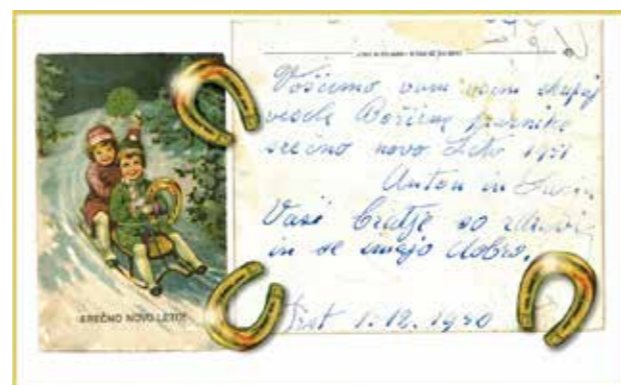 SREČNO NOVO LETO!
Voščimo vam vsem skupaj
vesele Božične praznike
srečno novo Leto 1951
Anton in
Vaši bratje so zdravi
in se imajo dobro.
Trst 1.12.1950